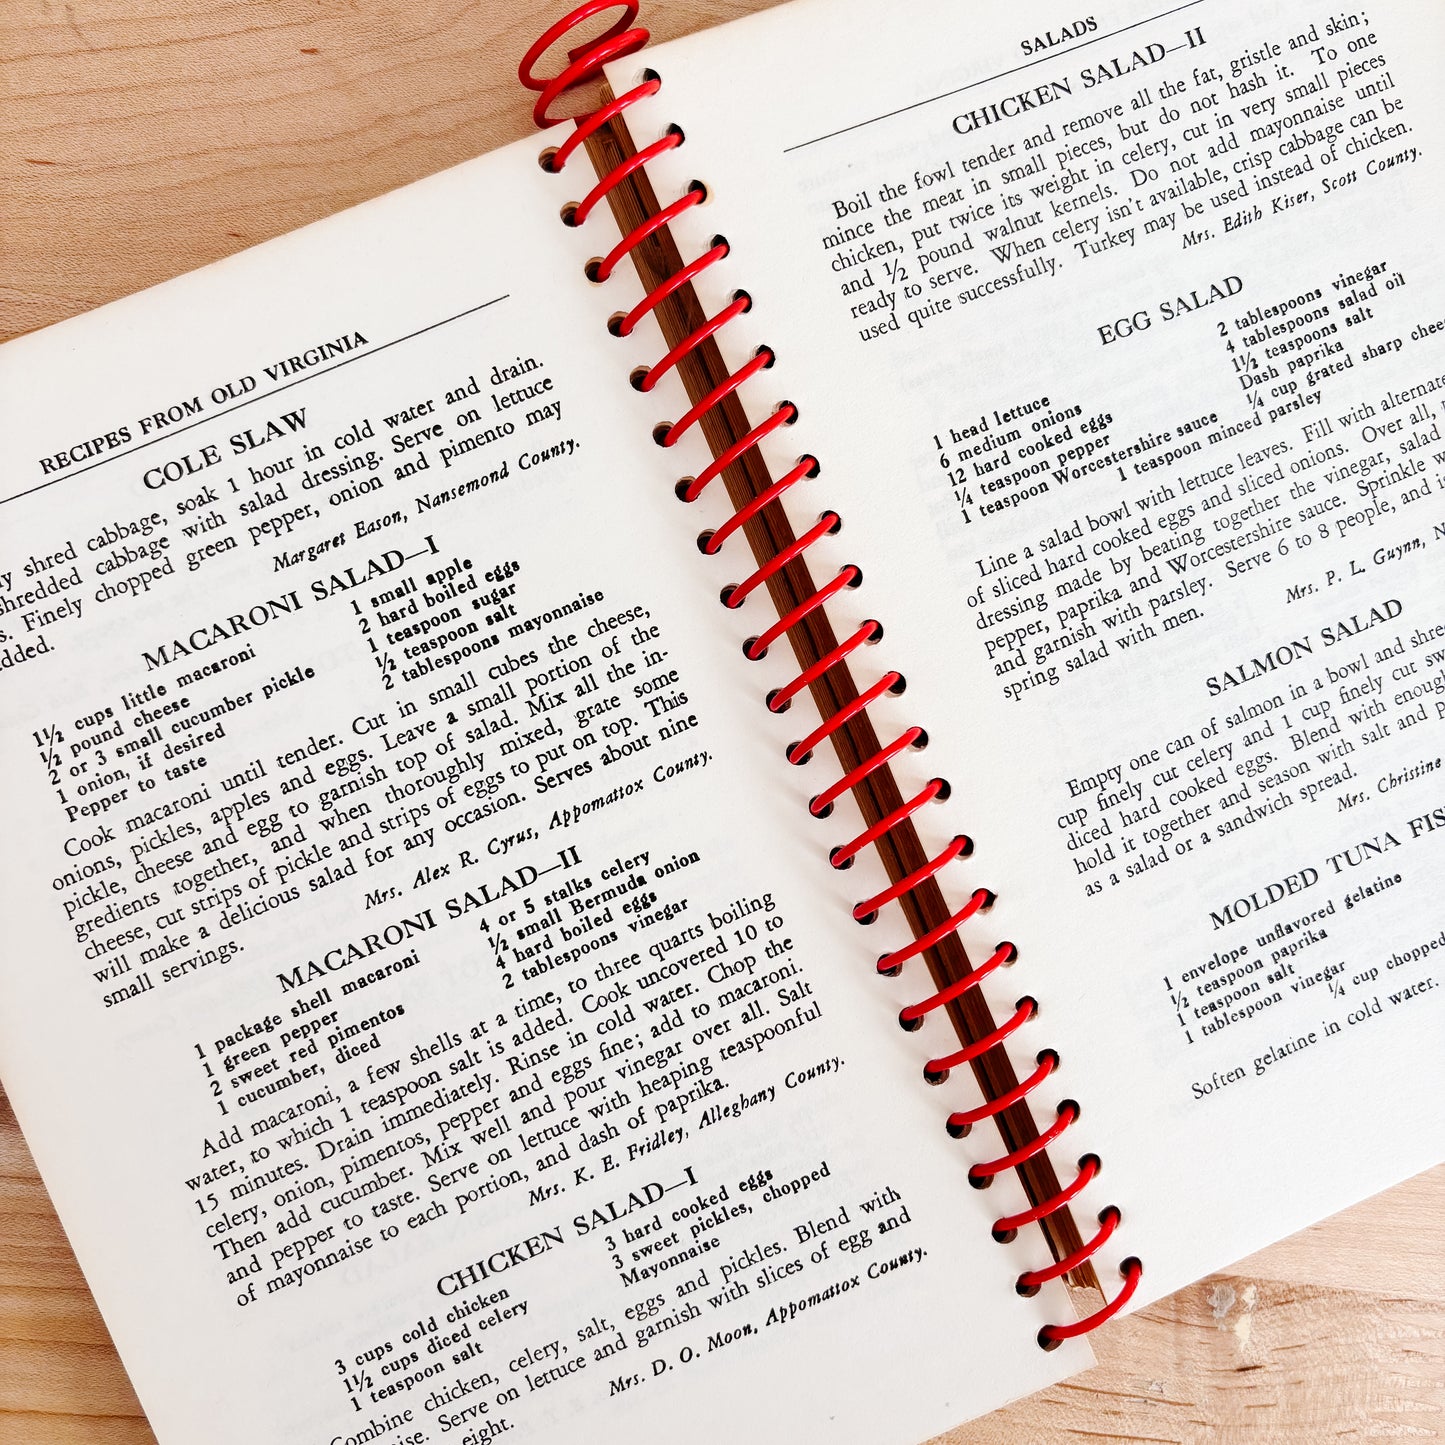 RECIPES FROM OLD VIRGINIA
COLE SLAW
shred cabbage, soak 1 hour in cold water and drain.
shredded cabbage with salad dressing. Serve on lettuce
Finely chopped green pepper, onion and pimento may
Margaret Eason, Nansemond County.
MACARONI SALAD—I
1½ cups little macaroni
½ pound cheese
2 or 3 small cucumber pickle
1 onion, if desired
Pepper to taste
1 small apple
2 hard boiled eggs
1 teaspoon sugar
½ teaspoon salt
2 tablespoons mayonnaise
Cook macaroni until tender. Cut in small cubes the cheese,
onions, pickles, apples and eggs. Leave a small portion of the
pickle, cheese and egg to garnish top of salad. Mix all the in-
gredients together, and when thoroughly mixed, grate some
cheese, cut strips of pickle and strips of eggs to put on top. This
will make a delicious salad for any occasion. Serves about nine
small servings.
Mrs. Alex R. Cyrus, Appomattox County.
MACARONI SALAD—II
1 package shell macaroni
1 green pepper
2 sweet red pimentos
1 cucumber, diced
4 or 5 stalks celery
½ small Bermuda onion
4 hard boiled eggs
2 tablespoons vinegar
Add macaroni, a few shells at a time, to three quarts boiling
water, to which 1 teaspoon salt is added. Cook uncovered 10 to
15 minutes. Drain immediately. Rinse in cold water. Chop the
celery, onion, pimentos, pepper and eggs fine; add to macaroni.
Then add cucumber. Mix well and pour vinegar over all. Salt
and pepper to taste. Serve on lettuce with heaping teaspoonful
of mayonnaise to each portion, and dash of paprika.
Mrs. K. E. Fridley, Alleghany County.
CHICKEN SALAD—I
3 cups cold chicken
1½ cups diced celery
1 teaspoon salt
3 hard cooked eggs
3 sweet pickles, chopped
Mayonnaise
Combine chicken, celery, salt, eggs and pickles. Blend with
Serve on lettuce and garnish with slices of egg and
eight.
Mrs. D. O. Moon, Appomattox County.
SALADS
CHICKEN SALAD—II
Boil the fowl tender and remove all the fat, gristle and skin;
mince the meat in small pieces, but do not hash it. To one
chicken, put twice its weight in celery, cut in very small pieces
and ½ pound walnut kernels. Do not add mayonnaise until
ready to serve. When celery isn't available, crisp cabbage can be
used quite successfully. Turkey may be used instead of chicken.
Mrs. Edith Kiser, Scott County.
EGG SALAD
1 head lettuce
6 medium onions
12 hard cooked eggs
¼ teaspoon pepper
1 teaspoon Worcestershire sauce
2 tablespoons vinegar
4 tablespoons salad oil
1½ teaspoons salt
Dash paprika
¼ cup grated sharp
1 teaspoon minced parsley
Line a salad bowl with lettuce leaves. Fill with alternate
of sliced hard cooked eggs and sliced onions. Over all,
dressing made by beating together the vinegar, salad
pepper, paprika and Worcestershire sauce. Sprinkle
and garnish with parsley. Serve 6 to 8 people, and
spring salad with men.
Mrs. P. L. Guynn,
SALMON SALAD
Empty one can of salmon in a bowl and
cup finely cut celery and 1 cup finely cut
diced hard cooked eggs. Blend with enough
hold it together and season with salt and
as a salad or a sandwich spread.
Mrs. Christine
MOLDED TUNA
1 envelope unflavored gelatine
½ teaspoon paprika
1 teaspoon salt
1 tablespoon vinegar
¼ cup chopped
Soften gelatine in cold water.